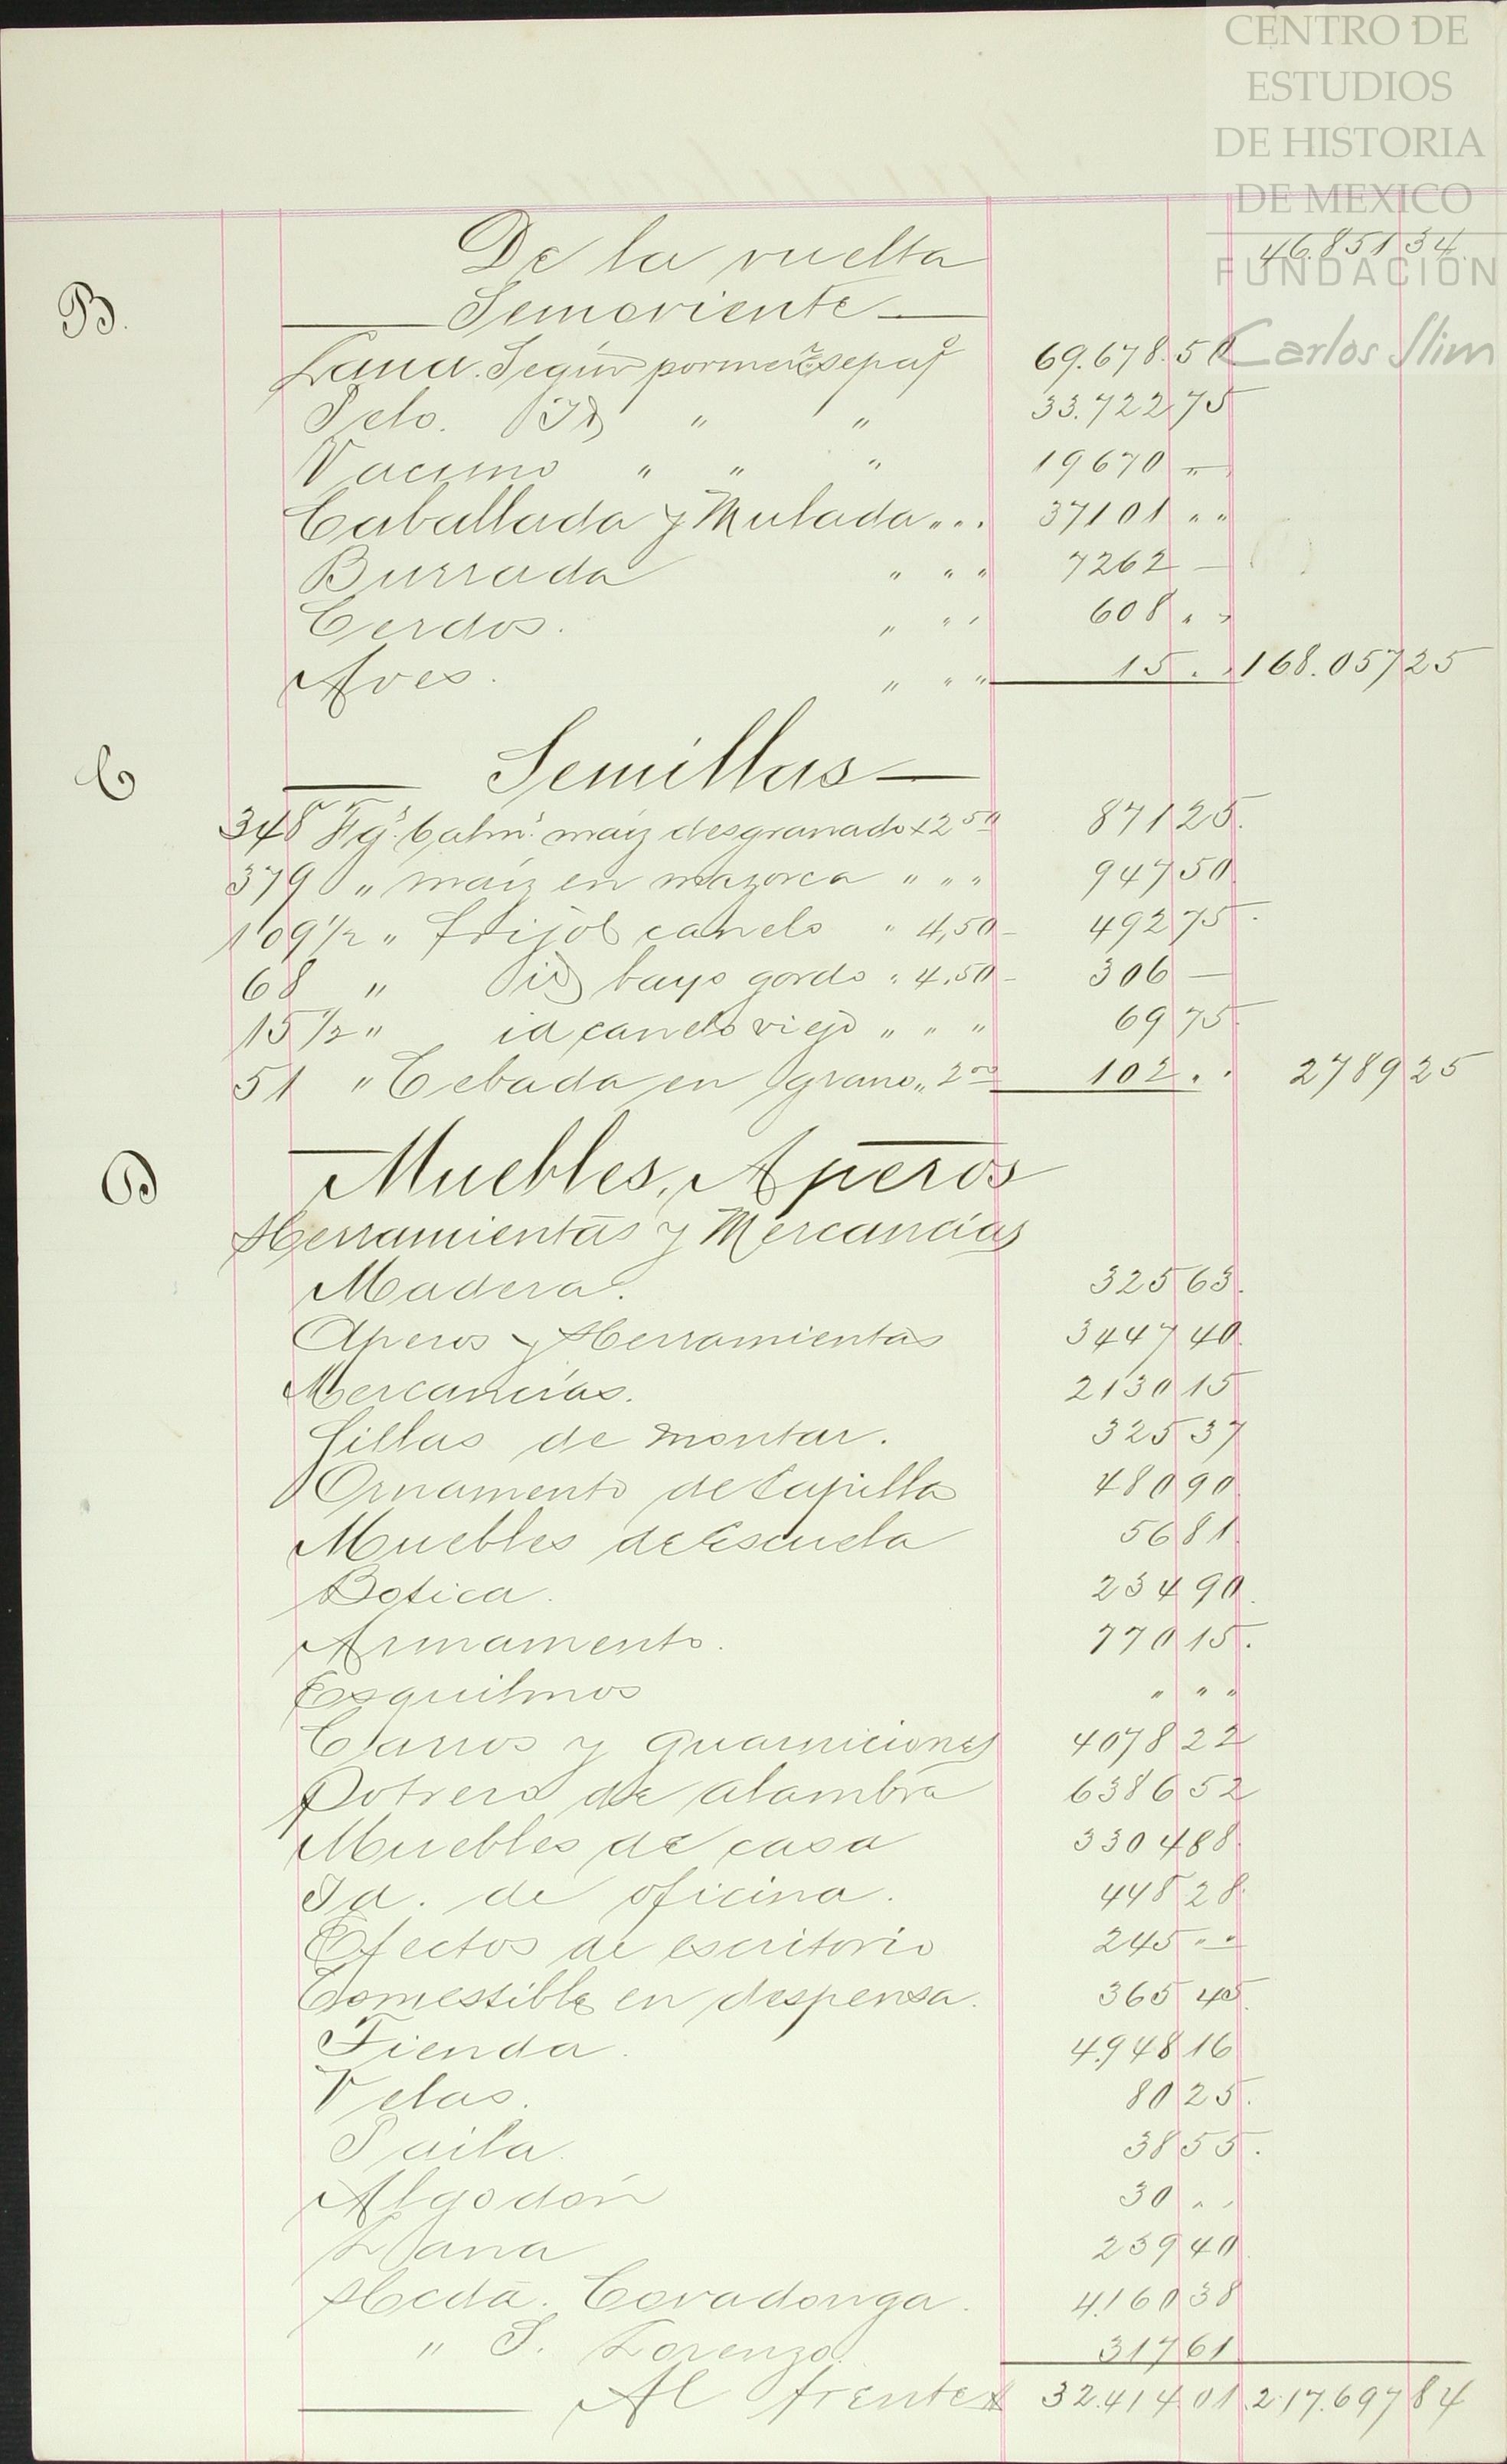 CENTRO DE
ESTUDIOS
DE HISTORIA
DE MEXICO
FUNDACIÓN
Carlos Slim
De la vuelta 46.851 34.
B. Semoviente
Lana. Según pormenr sepado 69.678.50
Pelo. Id " " 33.722 75
Vacuno " " " 19670 "
Caballada y Mulada " " " 37101 " "
Burrada " " " 7262 —
Cerdos. " " " 608 " "
Aves. " " " 15 . . 168.057 25
C Semillas
348 Fgs. 6 almes. maíz desgranado x 2 50 871 25.
379 " maíz en mazorca " " " 947 50
109 1/2 " frijol canelo " 4,50 — 492 75.
68 " id bayo gordo " 4.50 — 306 —
15 1/2 " id canelo viejo " " " 69 75.
51 " Cebada en grano " 2 00 102 . . 2789 25
D Muebles, Aperos
Herramientas y Mercancías
Madera. 325 63.
Aperos y Herramientas 3447 40.
Mercancías. 2130 15
Sillas de montar. 325 37
Ornamento de Capilla 480 90
Muebles de Escuela 56 81
Botica. 234 90.
Armamento. 770 15.
Esquilmos " " "
Carros y guarniciones 4078 22
Potrero de alambra 6386 52
Muebles de casa 3304 88.
Id. de oficina. 448 28.
Efectos de escritorio 245 " "
Comestible en despensa. 365 45.
Tienda. 4.948 16
Velas. 80 25.
Paila. 38 55.
Algodón 30 " "
Lana 239 40
Hcda. Covadonga. 4.160 38
" S. Lorenzo. 317 61
Al frente 32.414 01 217.697 84